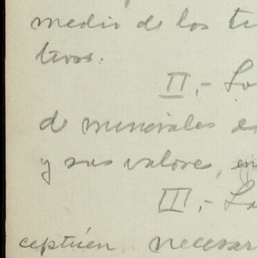 medio de los tr
tivos.
II.- Lo
de minerales es
y sus valores, en
III.- La
ceptúen necesar